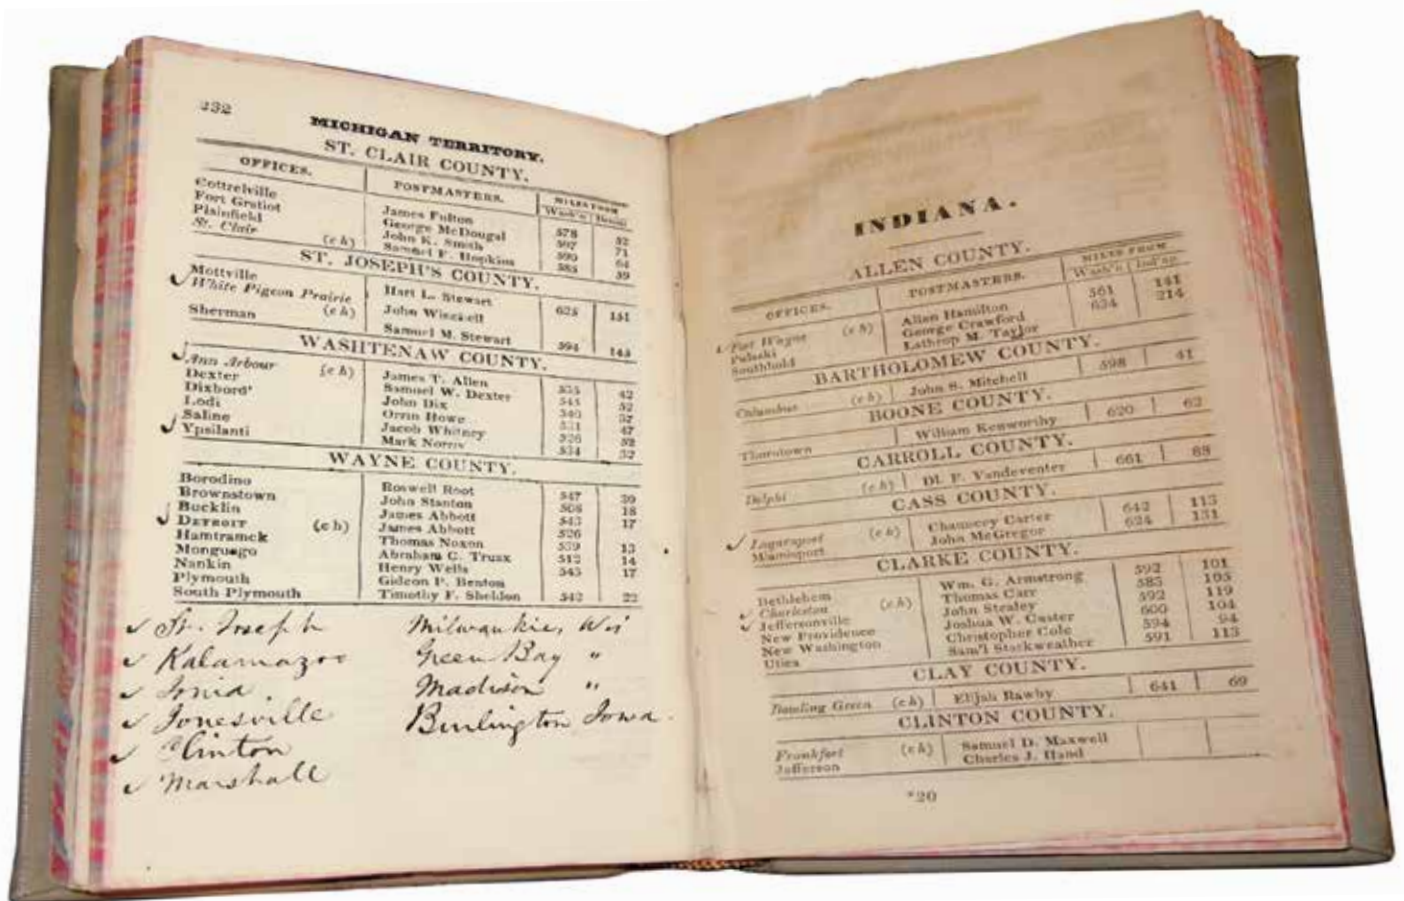 232
MICHIGAN TERRITORY.
ST. CLAIR COUNTY.
OFFICES. POSTMASTERS. MILES FROM
Wash'n Detroit
Cottrelville James Fulton 578 52
Fort Gratiot George McDougal 597 71
Plainfield John K. Smith 590 64
St. Clair (c h) Samuel F. Hopkins 585 59
ST. JOSEPH'S COUNTY.
✓ Mottville Hart L. Stewart
✓ White Pigeon Prairie (c h) John Winchell 625 151
Sherman Samuel M. Stewart 594 145
WASHTENAW COUNTY.
✓ Ann Arbour (c h) James T. Allen 42
Dexter Samuel W. Dexter 52
Dixboro' John Dix
Lodi Orrin Howe 47
Saline Jacob Whitney 52
✓ Ypsilanti Mark Norris 534 32
WAYNE COUNTY.
Borodino Roswell Root 547 30
Brownstown John Stanton 508 18
Bucklin James Abbott 543 17
✓ DETROIT (c h) James Abbott 526
Hamtramck Thomas Noxon 539 13
Monguago Abraham C. Truax 512 14
Nankin Henry Wells 543 17
Plymouth Gideon P. Benton
South Plymouth Timothy F. Sheldon 542 22
✓ St. Joseph Milwaukie, Wis
✓ Kalamazoo Green Bay "
✓ Ionia. Madison "
✓ Jonesville Burlington Iowa.
✓ Clinton
✓ Marshall
INDIANA.
ALLEN COUNTY.
OFFICES. POSTMASTERS. MILES FROM
Wash'n Ind'ap.
✓ Fort Wayne (c h) Allen Hamilton 561 141
Pulaski George Crawford 634 214
Southhold Lathrop M. Taylor
BARTHOLOMEW COUNTY.
Columbus (c h) John S. Mitchell 598 41
BOONE COUNTY.
Thorntown William Kenworthy 620 62
CARROLL COUNTY.
Delphi (c h) Vandeventer 661 88
CASS COUNTY.
✓ Logansport (c h) Chauncey Carter 642 113
Miamisport John McGregor 624 131
CLARKE COUNTY.
Bethlehem Wm. G. Armstrong 592 101
✓ Charleston (c h) Thomas Carr 585 105
✓ Jeffersonville John Stealey 592 119
New Providence Joshua W. Custer 600 104
New Washington Christopher Cole 594 94
Utica Sam'l Starkweather 591 113
CLAY COUNTY.
Bowling Green (c h) Elijah Rawby 641 69
CLINTON COUNTY.
Frankfort (c h) Samuel D. Maxwell
Jefferson Charles J. Hand
*20